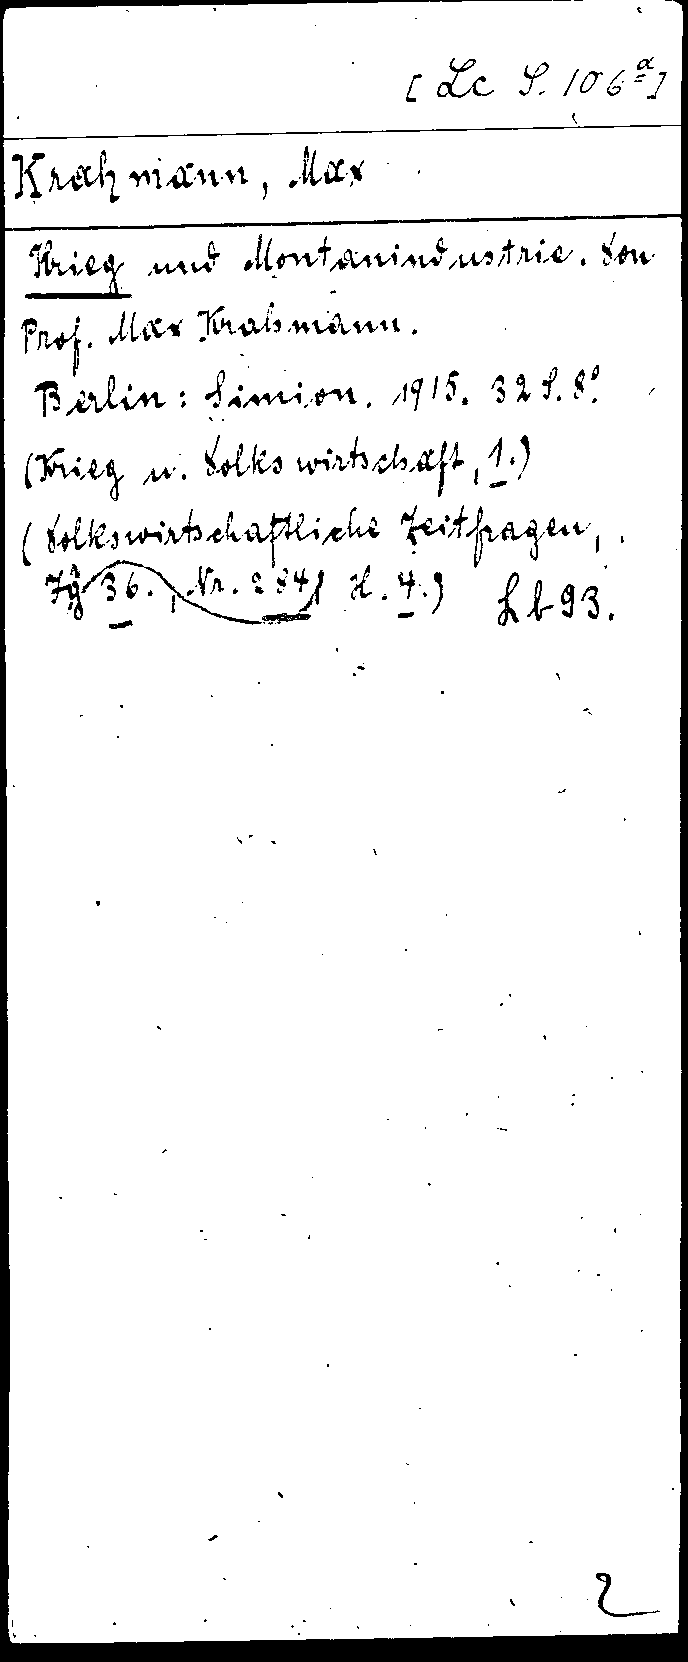 [Lc S. 106a]
Krahmann, Max
Krieg und Montanindustrie. Von
Prof. Max Krahmann.
Berlin: Simion. 1915. 32 S. 8°.
(Krieg u. Volkswirtschaft, 1.)
(Volkswirtschaftliche Zeitfragen,
Jg 36., Nr. 284, H. 4.) Lb 93.
2